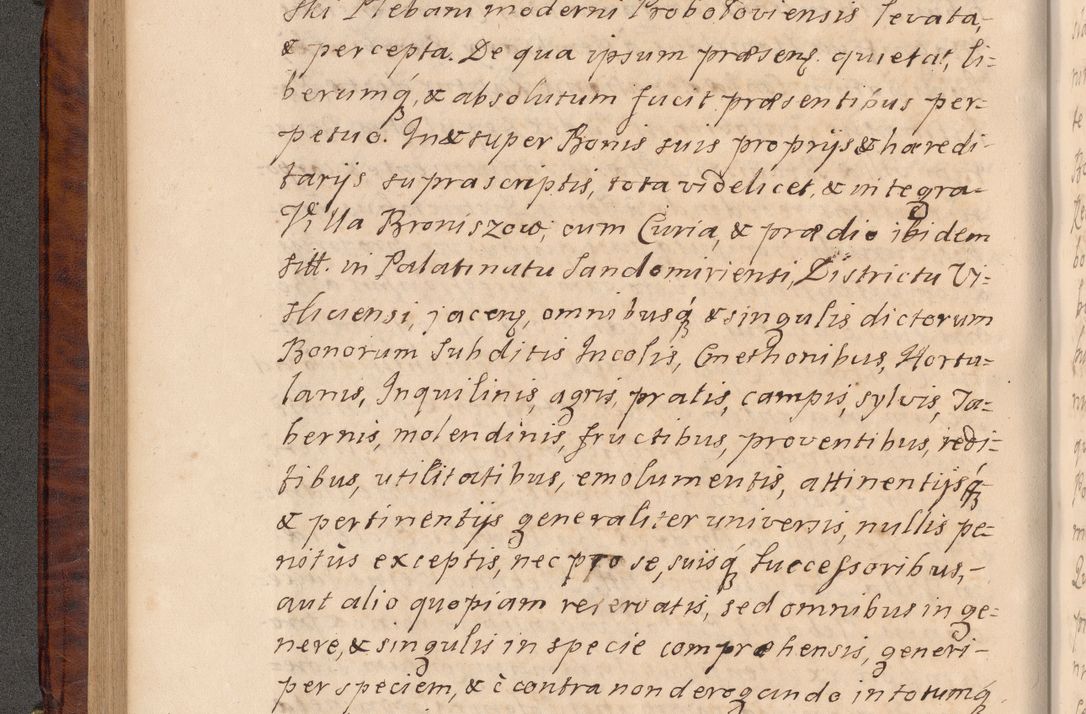 ski Plebani moderni Probotoviensis levata,
& percepta. De qua ipsum præsens quietat, li=
berumq, & absolutum facit præsentibus per=
petuo. In & super Bonis suis proprijs & hæredi-
tarijs suprascriptis, tota videlicet, & integra-
Villa Broniszow, cum Curia, & prædio ibidem
sitt. in Palatinatu Sandomiriensi, Districtu Vi=
sliciensi, jacens, omnibusq & singulis dictorum
Bonorum Subditis Incolis, Cmethonibus, Hortu=
lanis, Inquilinis, agris, pratis, campis, sylvis, Ta=
bernis, molendinis, fructibus, proventibus, redi-
tibus, utilitatibus, emolumentis, attinentijsq
& pertinentijs generaliter universis, nullis pe=
nitùs exceptis, nec pro se, suisq successoribus,-
aut alio quopiam reservatis, sed omnibus in ge=
nere, & singulis in specie comprehensis, generi-
per speciem, & è contra non derogando in totumq